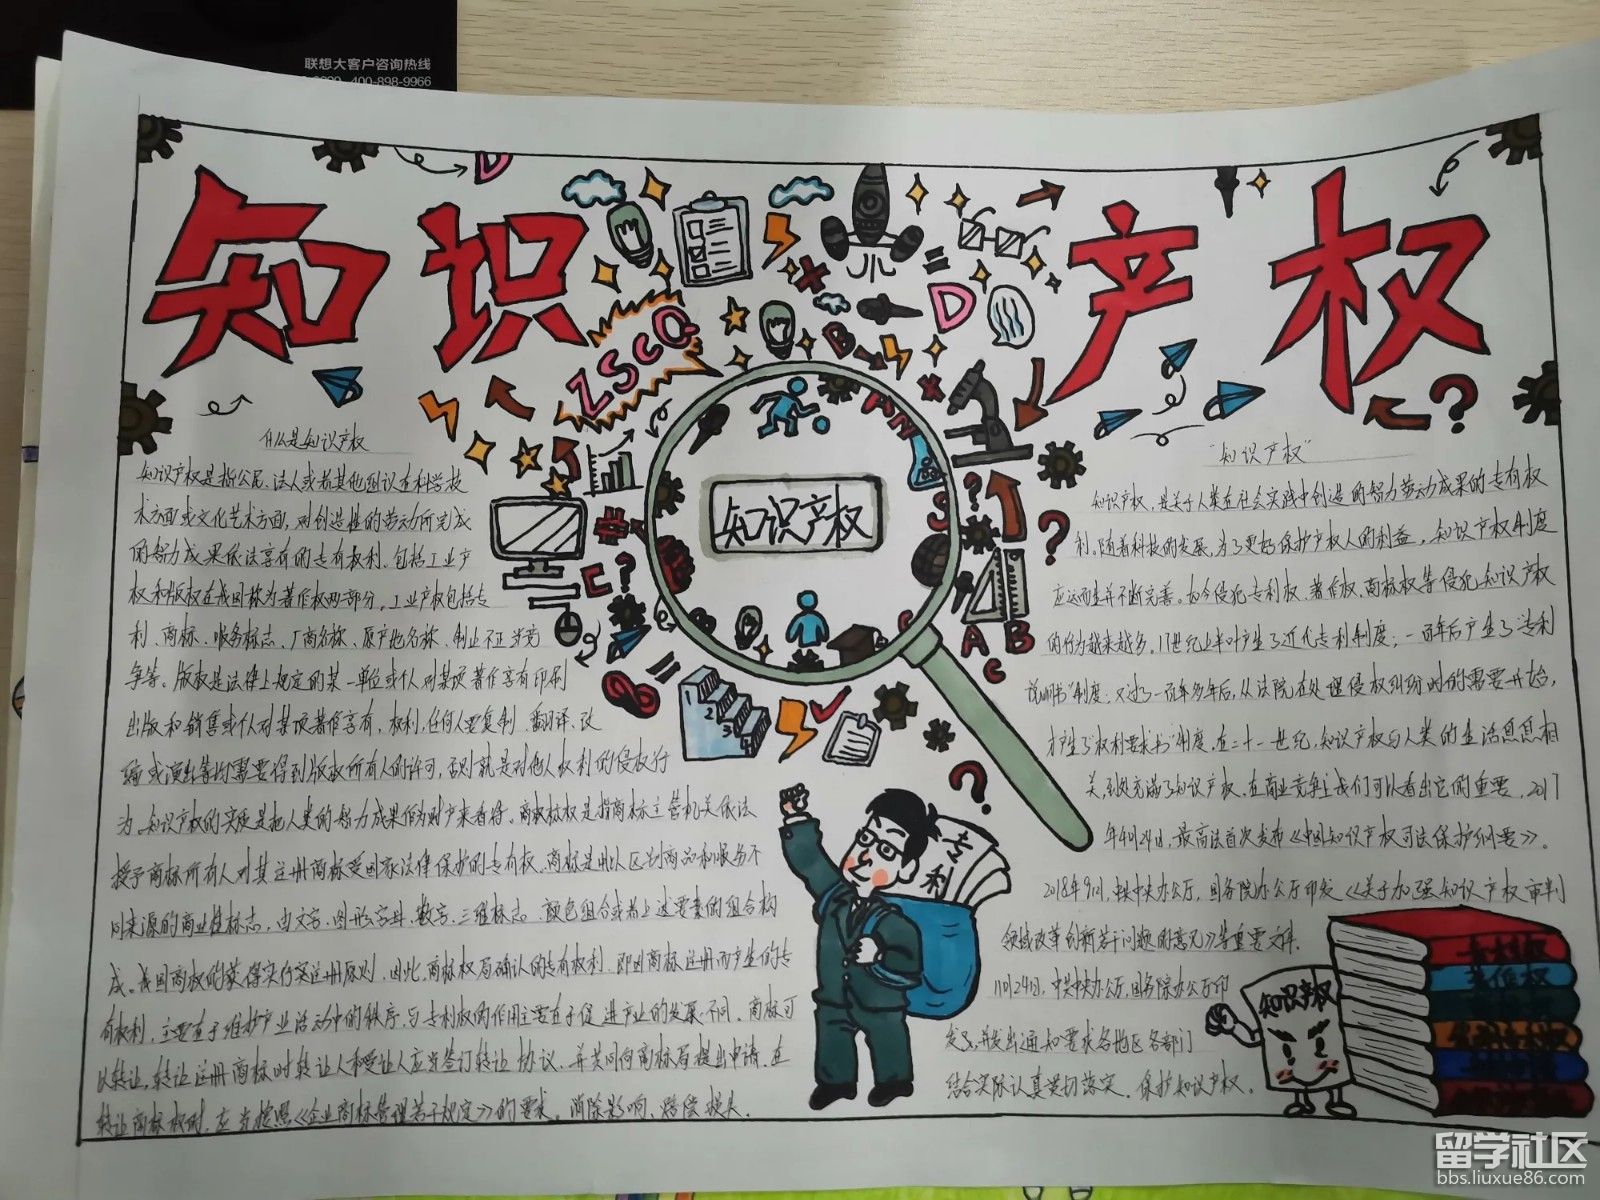 联想大客户咨询热线
400-898-9966
知识产权
D
ZSCQ
D
B
知识产权
A
B
C
什么是知识产权
知识产权是指公民、法人或者其他组织在科学技
术方面或文化艺术方面，对创造性的劳动所完成
的智力成果依法享有的专有权利。包括工业产
权和版权在我国称为著作权两部分。工业产权包括专
利、商标、服务标志、厂商名称、原产地名称、制止不正当竞
争等。版权是法律上规定的某一单位或个人对某项著作享有印刷
出版和销售或个人对某项著作享有，权利，任何人要复制、翻译、改
编或演出等均需要得到版权所有人的许可，否则就是对他人权利的侵权行
为。知识产权的实质是把人类的智力成果作为财产来看待。商标权是指商标主管机关依法
授予商标所有人对其注册商标受国家法律保护的专有权。商标是用以区别商品和服务不
同来源的商业性标志，由文字、图形、字母、数字、三维标志、颜色组合或者上述要素的组合构
成。我国商标权的获得实行实注册原则，因此，商标权局确认的专有权利，即因商标注册而产生的专
有权利，主要在于维护产业活动中的秩序，与专利权的作用主要在于促进产业的发展不同。商标可
以转让，转让注册商标时转让人和受让人应当签订转让协议，并共同向商标局提出申请。在
转让商标权时，应当按照《企业商标管理若干规定》的要求。消除影响、赔偿损失。
“知识产权”
知识产权，是关于人类在社会实践中创造的智力劳动成果的专有权
利。随着科技的发展，为了更好保护产权人的利益，知识产权制度
应运而生并不断完善。如今侵犯专利权、著作权、商标权等侵犯知识产权
的行为越来越多。17世纪上半叶产生了近代专利制度；一百年后产生了“专利
说明书”制度；又过了一百年多年后，从法院在处理侵权纠纷时的需要开始，
才产生了“权利要求书”制度。在二十一世纪，知识产权与人类的生活息息相
关，到处充满了知识产权，在商业竞争上我们可以看出它的重要。2017
年4月24日，最高法首次发布《中国知识产权司法保护纲要》。
2018年9月，中共中央办公厅、国务院办公厅印发《关于加强知识产权审判
领域改革创新若干问题的意见》等重要文件.
11月24日，中共中央办公厅、国务院办公厅印
发了，并发出通知要求各地区各部门
结合实际认真贯彻落实。保护知识产权。
专利
知识产权
留学社区
bbs.liuxue86.com